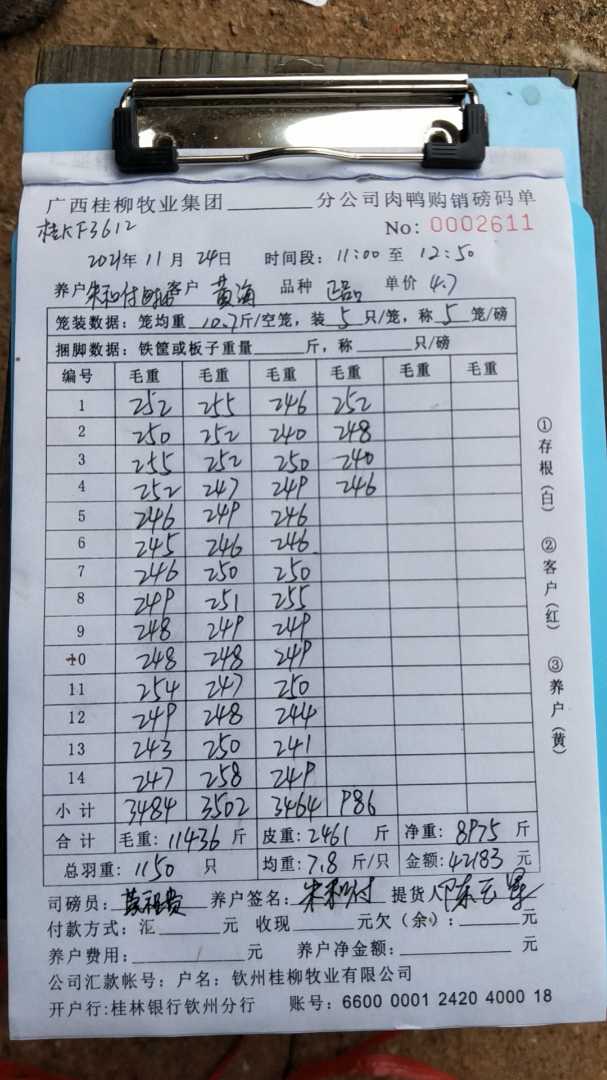 广西桂柳牧业集团________分公司肉鸭购销磅码单
桂KF3612 No: 0002611
2021年 11 月 24日 时间段: 11:00 至 12:50
养户 朱和付 客户 黄海 品种 正品 单价 4.7
笼装数据: 笼均重 10.7 斤/空笼, 装 5 只/笼, 称 5 笼/磅
捆脚数据: 铁筐或板子重量______斤, 称______只/磅
编号 毛重 毛重 毛重 毛重 毛重 毛重
1 252 255 246 252
2 250 252 240 248
3 255 252 250 240
4 252 247 249 246
5 246 249 246
6 245 246 246
7 246 250 250
8 249 251 255
9 248 249 249
10 248 248 249
11 254 247 250
12 249 248 244
13 243 250 241
14 247 258 249
小计 3484 3502 3464 986
合计 毛重: 11436 斤 皮重: 2461 斤 净重: 8975 斤
总羽重: 1150 只 均重: 7.8 斤/只 金额: 42183 元
司磅员: 养户签名: 朱和付 提货人
付款方式: 汇______元 收现______元欠(余): ______元
养户费用: ______元 养户净金额: ______元
公司汇款帐号: 户名: 钦州桂柳牧业有限公司
开户行: 桂林银行钦州分行 账号: 6600 0001 2420 4000 18
①存根(白) ②客户(红) ③养户(黄)